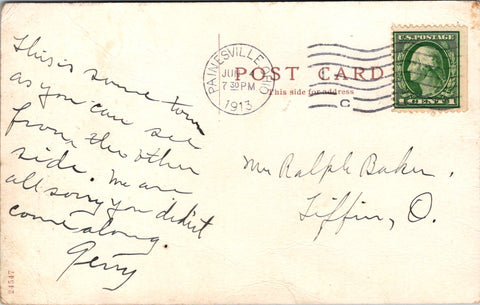 This is some town
as you can see
from the other
side. We are
all sorry you didn't
come along
Gerry
24547
PAINESVILLE, OHIO
JUN
7 30 PM
1913
C
POST CARD
This side for address
U.S. POSTAGE
1 CENTS 1
Mr Ralph Baker.
Tiffin, O.